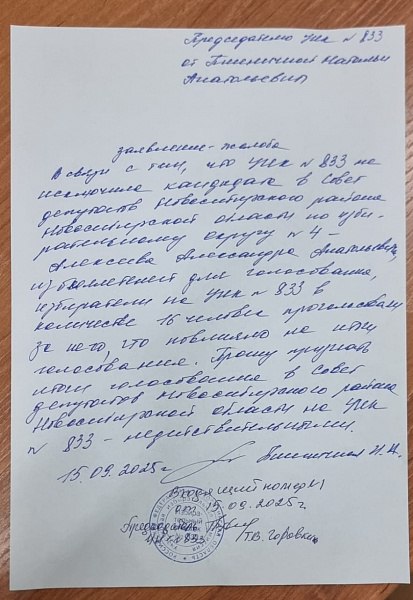 Председателю УИК № 833
от Пшеничной Натальи
Анатольевны
заявление-жалоба
В связи с тем, что УИК № 833 не
исключила кандидата в Совет
депутатов Новосибирского района
Новосибирской области по изби-
рательному округу № 4 –
Алексеева Александра Анатольевича,
из бюллетеней для голосования,
избиратели на УИК № 833 в
количестве 16 человек проголосовали
за него, что повлияло на итоги
голосования. Прошу признать
итоги голосования в Совет
депутатов Новосибирского района
Новосибирской области на УИК
№ 833 – недействительными.
15.09.2025г Пшеничная Н.А.
Входящий номер №1
от 15.09.2025г.
Председатель
УИК №833 Т.В.